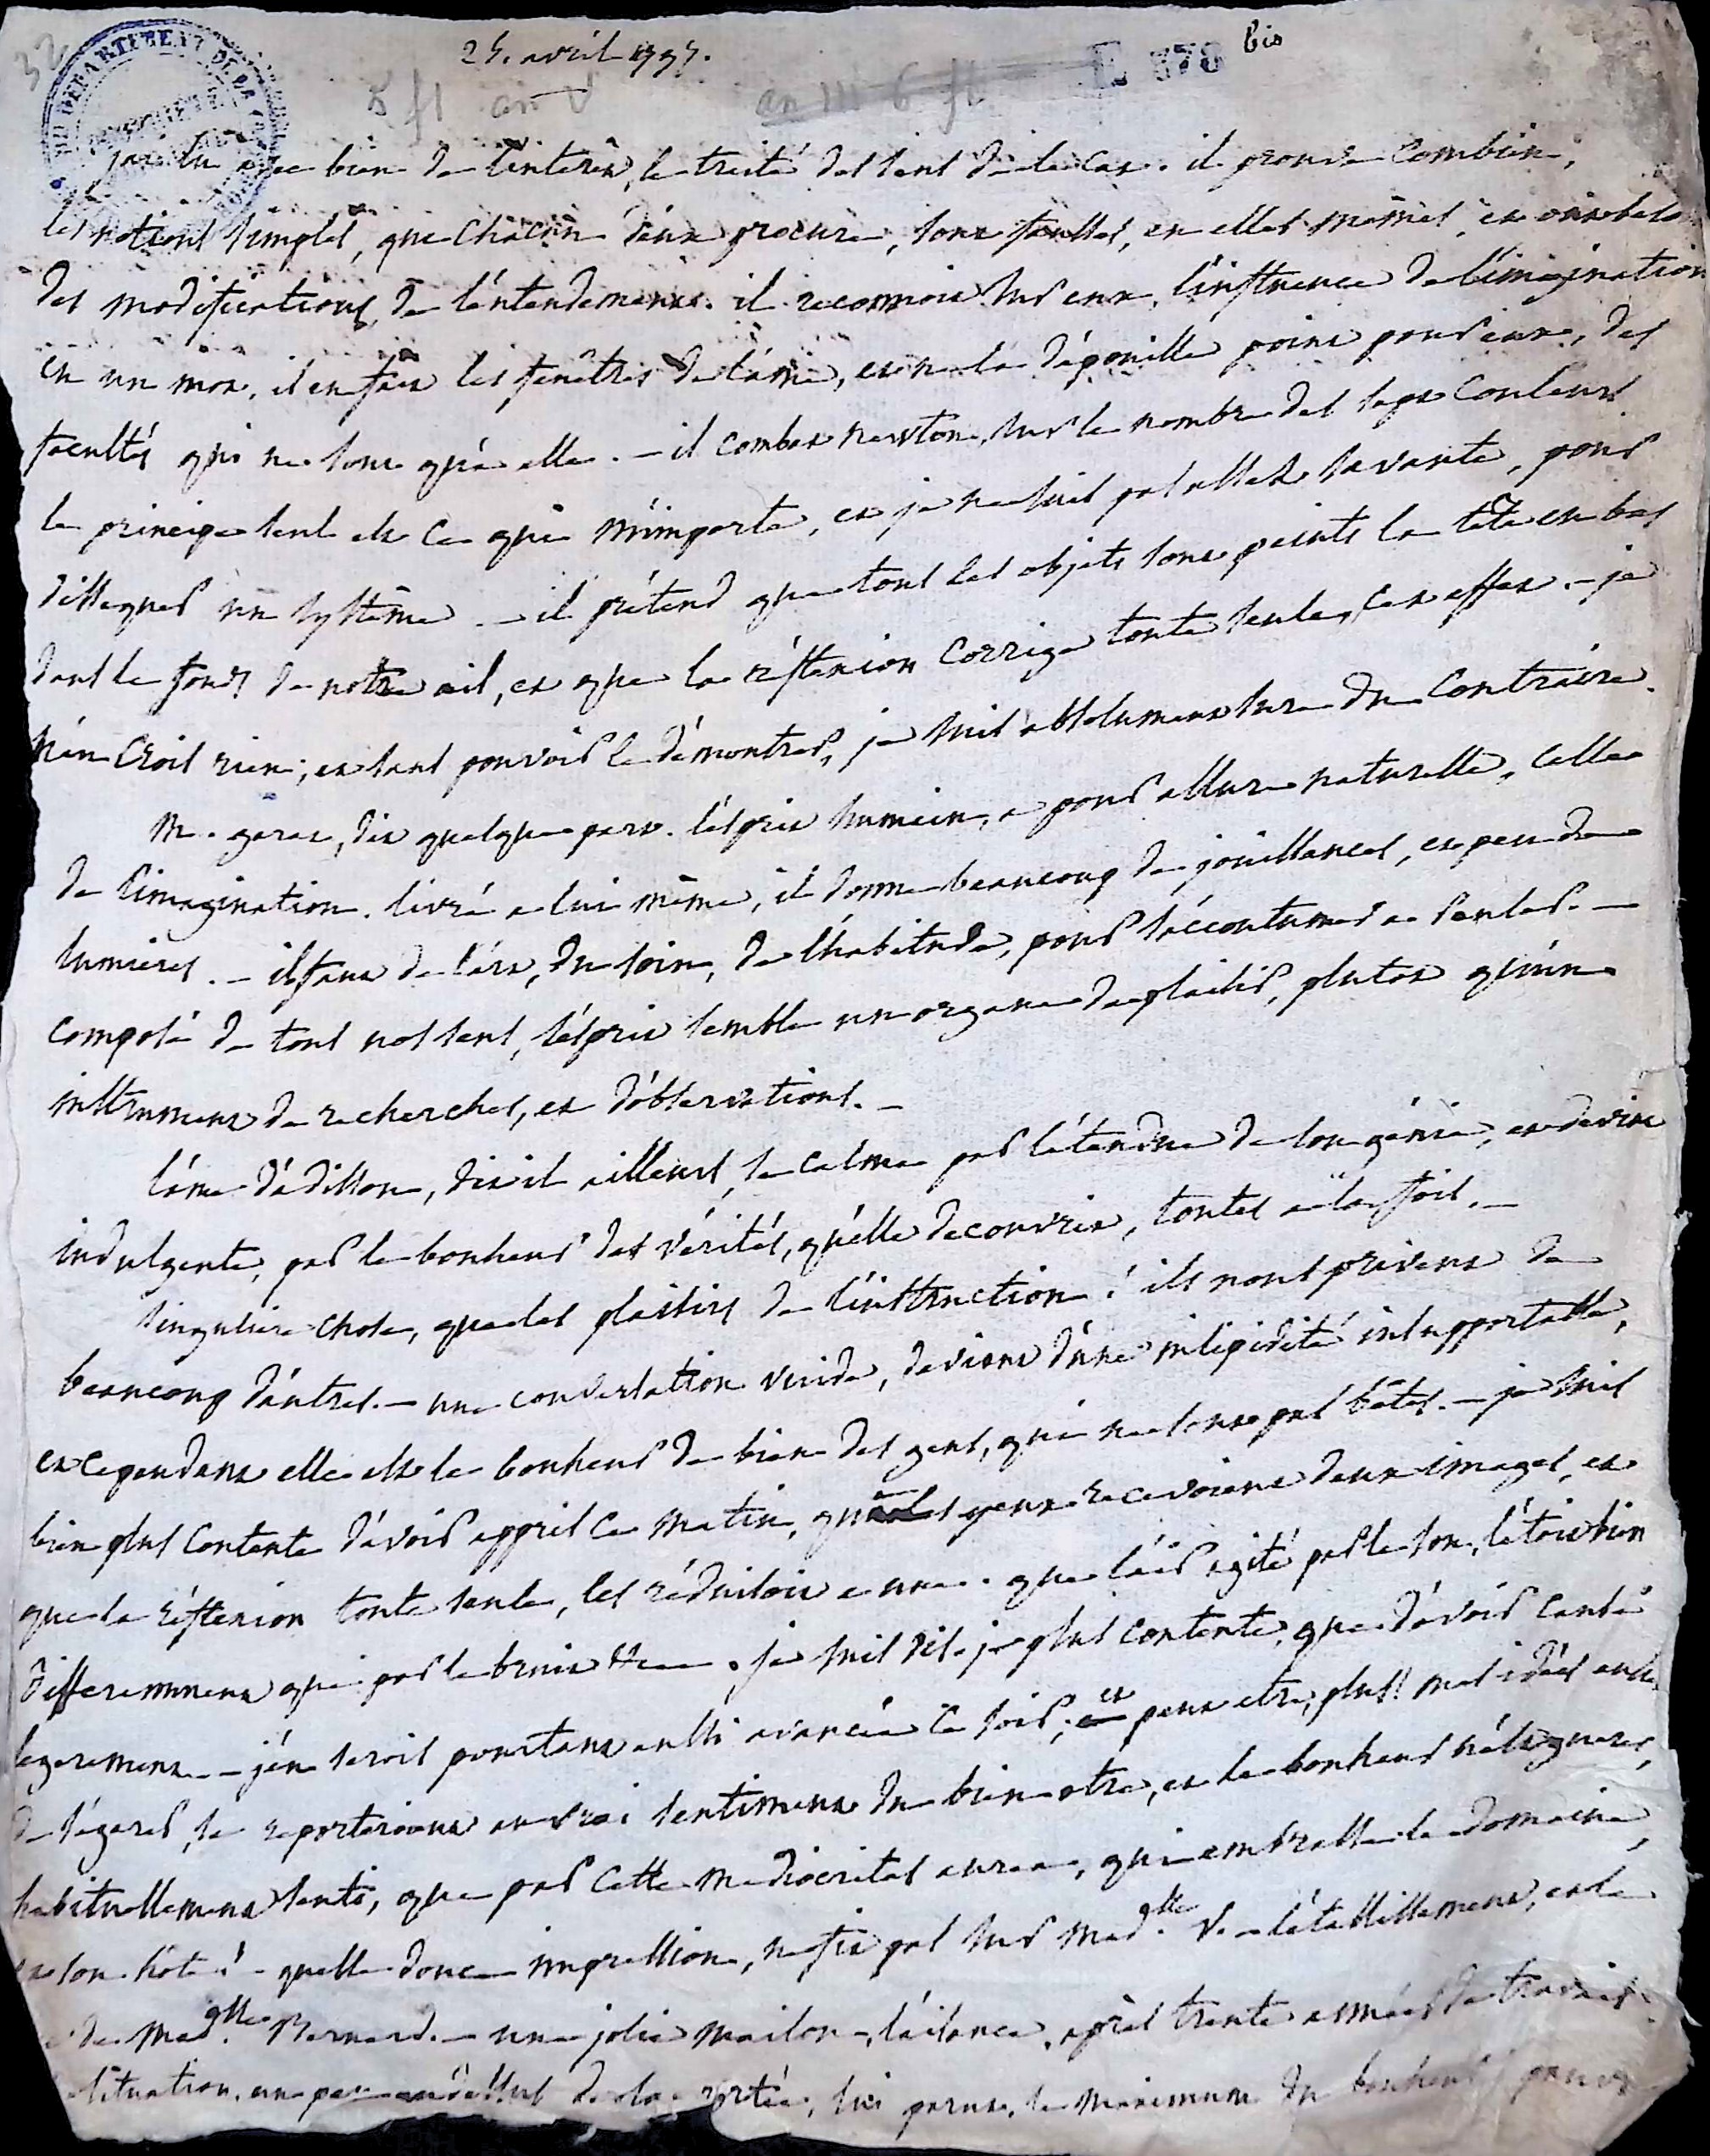 32
25. avril 1797.
E 378 bis
5 fl an V
an III 6 fl
DU DEPARTEMENT DE
j'ai lu avec bien de l'interêt, le traité des sens de le Cat. il prouve combien,
les notions simples, que chacun d'eux procure, sont fausses, en elles mêmes, et
des modifications, de l'entendement. il reconnoit sur eux, l'influence de l'imagination
en un mot, il en fait les fenêtres de l'âme, et ne la dépouille point pour eux, des
facultés qui ne sont qu'à elle. – il combat newton, sur le nombre des sept couleurs
le principe seul est ce qui m'importe, et je ne suis pas assez savante, pour
disséquer un systême – il prétend que tous les objets sont peints la tête en bas
dans le fond de notre œil, et que la réflexion corrige toute seule, cet effet. – je
n'en crois rien; et sans pouvoir le démontrer, je suis absolument sure du contraire.
M. garat, dit quelque part. l'esprit humain, a pour allure naturelle, celle
de l'imagination. livré a lui même, il donne beaucoup de jouissances, et peu de
lumieres. – il faut de l'art, du soin, de l'habitude, pour s'accoutumer a penser. –
composé de tous nos sens, l'esprit semble un organe de plaisir, plutot qu'un
instrument de recherches, et d'observations. –
l'âme d'adisson, dit il ailleurs, se calme par l'étendue de son génie, et devint
indulgente, par le bonheur des vérités, qu'elle decouvrit, toutes a la fois. –
singuliere chose, que les plaisirs de l'instruction! ils nous privent de
beaucoup d'autres. – une conversation vuide, devient d'une insipidité insupportable,
et cependant elle est le bonheur de bien des gens, qui ne sont pas bêtes. – je suis
bien plus contente d'avoir appris ce matin, que les yeux recevoient deux images, et
que la réflexion toute seule, les réduisoit a une. que l'air agité par le son, l'étoit bien
differemment que par le bruit &c. je suis dis-je plus contente, que d'avoir causé
legerement. – j'en serois pourtant aussi avancée ce soir, et peut etre, plus! mes idées au lieu
de s'égarer, se reporteroient au vrai sentiment du bien etre, et le bonheur n'est gueres,
habituellement senti, que par cette mediocritas aurea, qui embrasse le domaine,
et son hôte! – quelle douce impression, ne fit pas sur mad.elle V. l'établissement, et la
de mad.elle Bernard. – une jolie maison, l'aisance, après trente années de travail,
situation, un peu au dessus de la portée, lui parut, le maximum du bonheur!